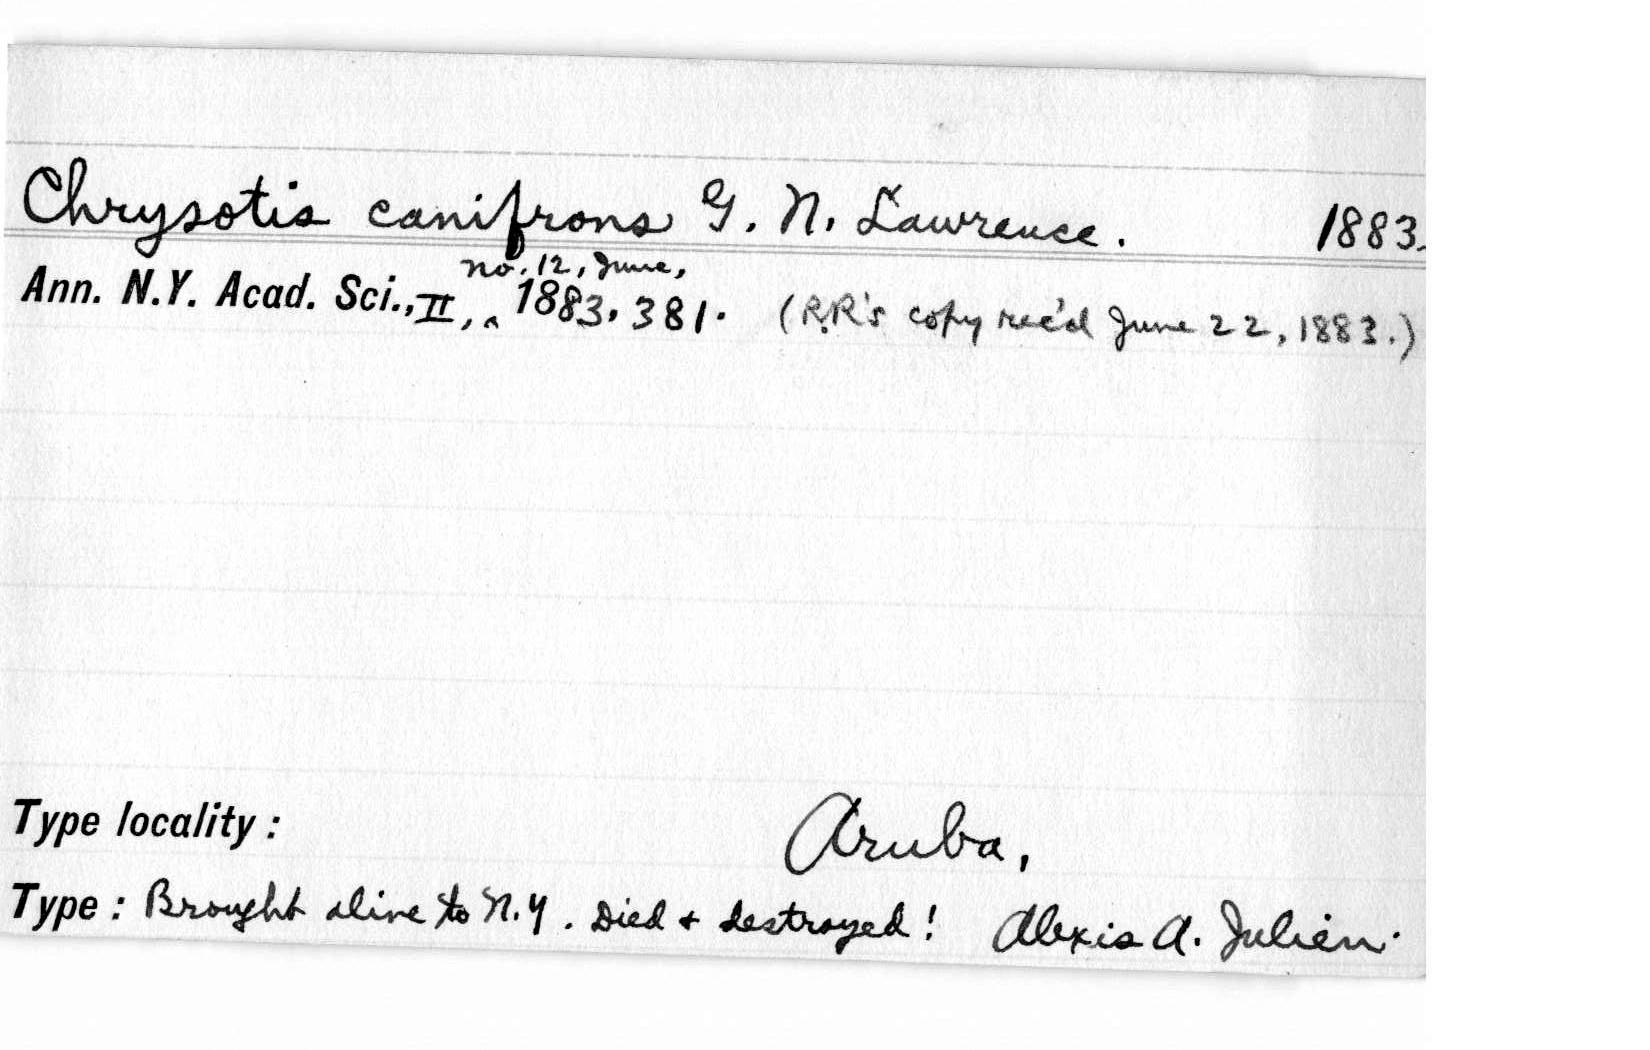 Chrysotis canifrons G. N. Lawrence. 1883.
no. 12, June,
Ann. N.Y. Acad. Sci., II, ‸ 1883, 381. (R.R's copy rec'd June 22, 1883.)
Type locality: Aruba,
Type: Brought alive to N.Y. Died + destroyed! Alexis A. Julien.